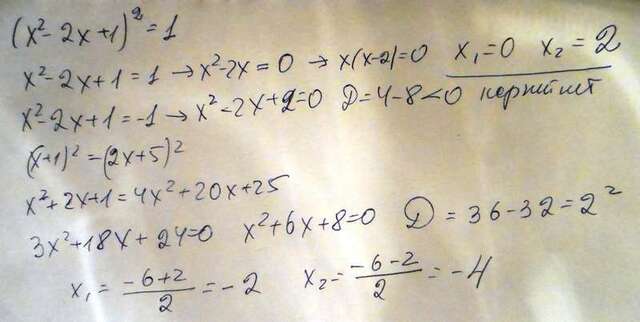 (x²-2x+1)²=1
x²-2x+1=1 → x²-2x=0 → x(x-2)=0 x₁=0 x₂=2
x²-2x+1=-1 → x²-2x+2=0 D=4-8<0 корней нет
(x+1)²=(2x+5)²
x²+2x+1=4x²+20x+25
3x²+18x+24=0 x²+6x+8=0 D=36-32=2²
x₁=(-6+2)/2=-2 x₂=(-6-2)/2=-4